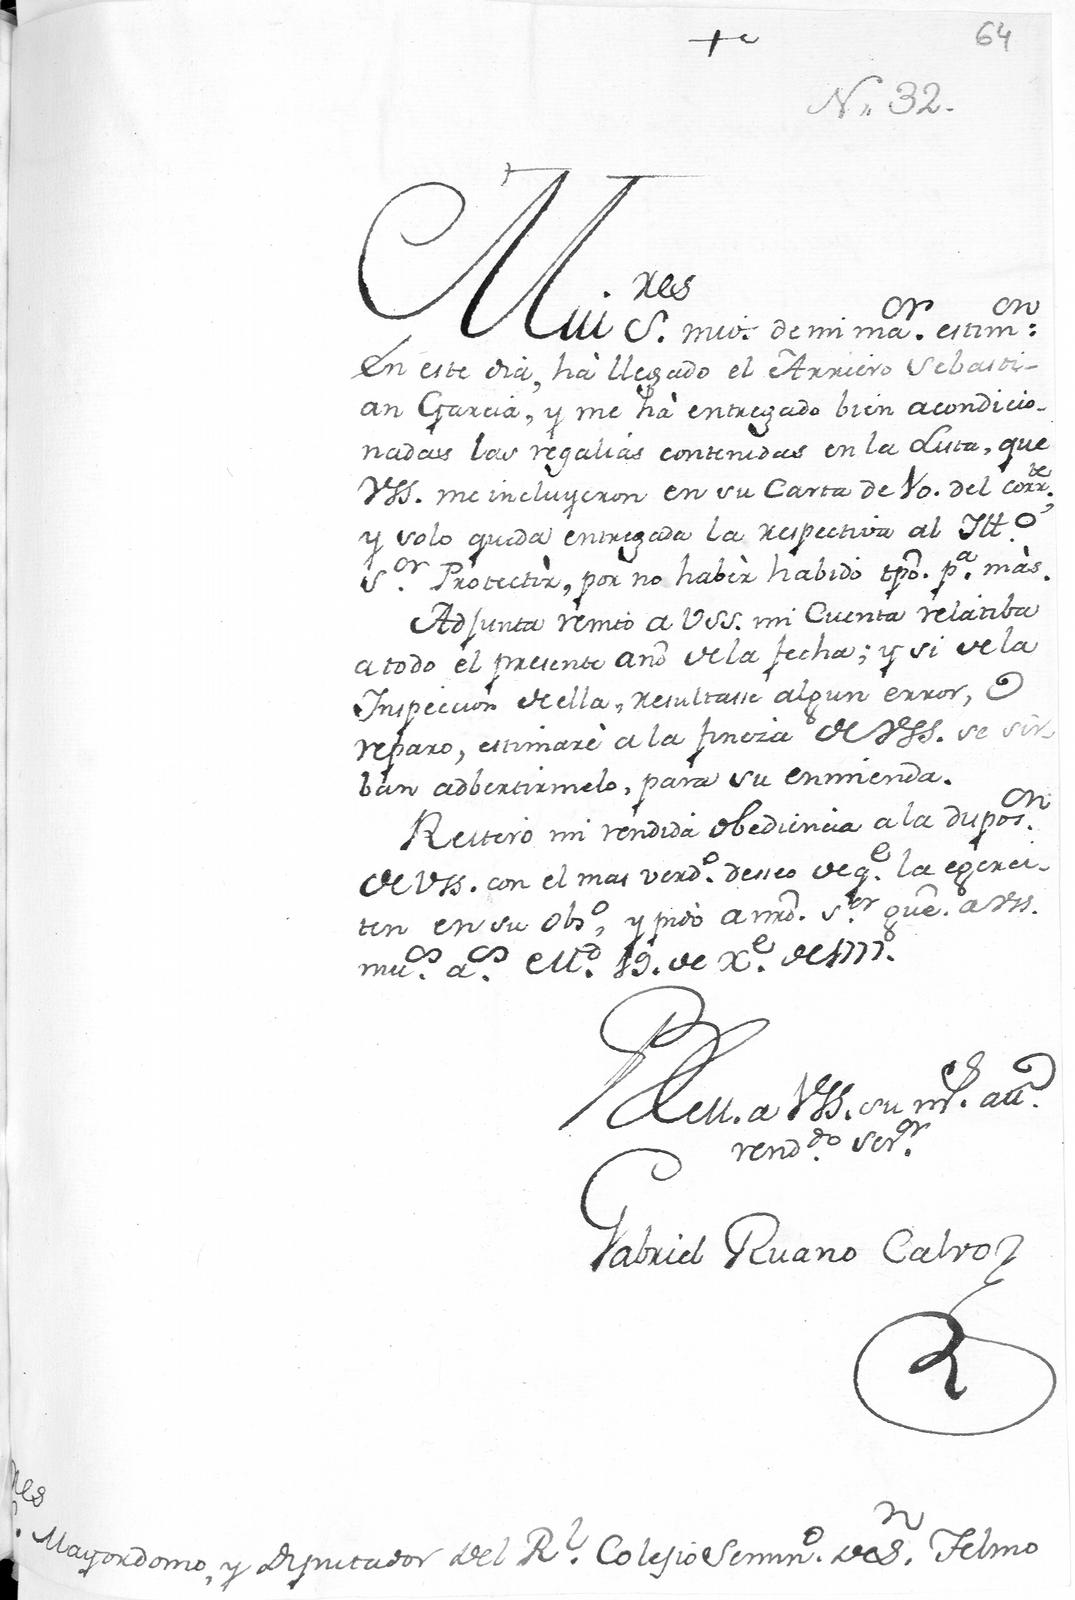 64
+
N. 32.
Mui S.res mios de mi ma.or estim.on:
En este dia, hà llegado el Arriero Sebasti-
an Garcia, y me hà entregado bien acondicio-
nadas las regalias contenidas en la Lista, que
VSS. me incluyeron en su Carta de 10. del corr.te
y solo queda entregada la respectiva al Ill.o
S.or Protectòr, por no habèr habido tpo. p.a màs.
Adjunta remito a VSS. mi Cuenta relatiba
a todo el presente año de la fecha; y si de la
Inspeccion de ella, resultasse algun error, ò
reparo, estimarè a la fineza de VSS. se sir-
ban adbertirmelo, para su enmienda.
Reitero mi rendida obediencia a la dispos.on
de VSS. con el mas verd.o desseo de q.e la egerci-
ten en su obs.o, y pido a nrõ. S.or gue. a VSS.
mu.s a.s Md. 19. de X.e de 1777.
BLM. a VSS. su m.s att.o
rend.do ser.or
Gabriel Ruano Calvo
S.res Mayordomo, y Diputados del R.l Colegio Semin.o de S.n Telmo